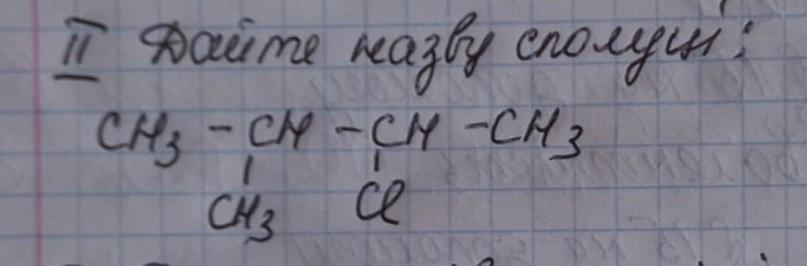 II Дайте назву сполуці:
CH3 - CH - CH - CH3
CH3 Cl